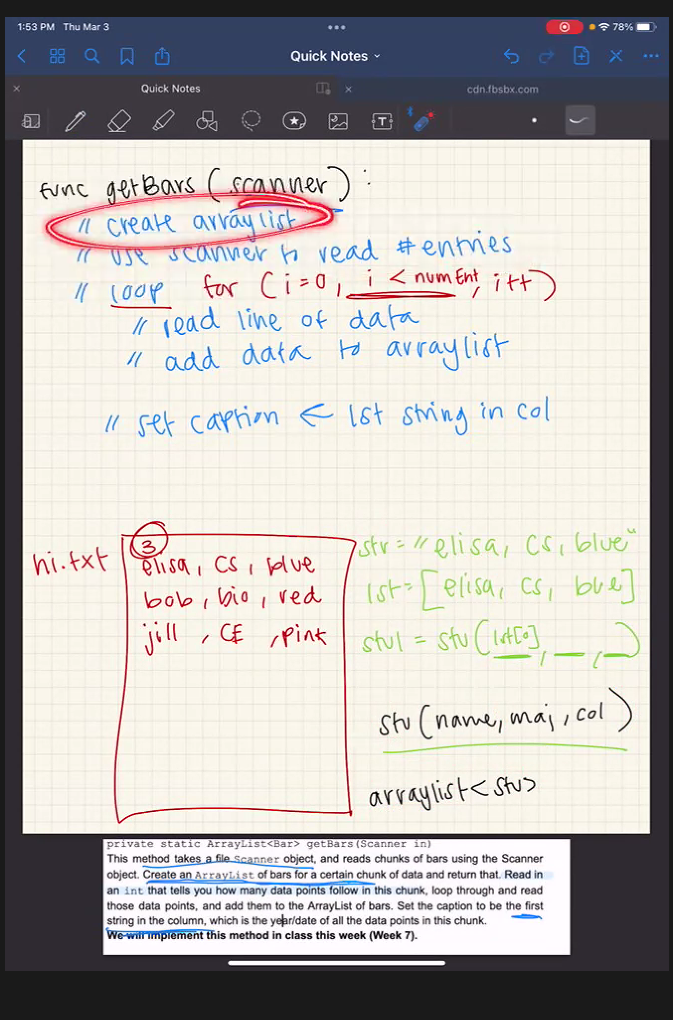 1:53 PM Thu Mar 3
78%
Quick Notes
Quick Notes
cdn.fbsbx.com
func getBars (scanner) :
// create arraylist
// use scanner to read # entries
// loop for (i=0, i < numEnt, i++)
// read line of data
// add data to arraylist
// set caption ← 1st string in col
hi.txt
3
elisa, CS, blue
bob, bio, red
jill , CE , pink
str = "elisa, CS, blue"
lst = [elisa, cs, blue]
stu1 = stu(lst[0], __, __)
stu(name, maj, col)
arraylist<stu>
private static ArrayList<Bar> getBars(Scanner in)
This method takes a file Scanner object, and reads chunks of bars using the Scanner
object. Create an ArrayList of bars for a certain chunk of data and return that. Read in
an int that tells you how many data points follow in this chunk, loop through and read
those data points, and add them to the ArrayList of bars. Set the caption to be the first
string in the column, which is the year/date of all the data points in this chunk.
We will implement this method in class this week (Week 7).